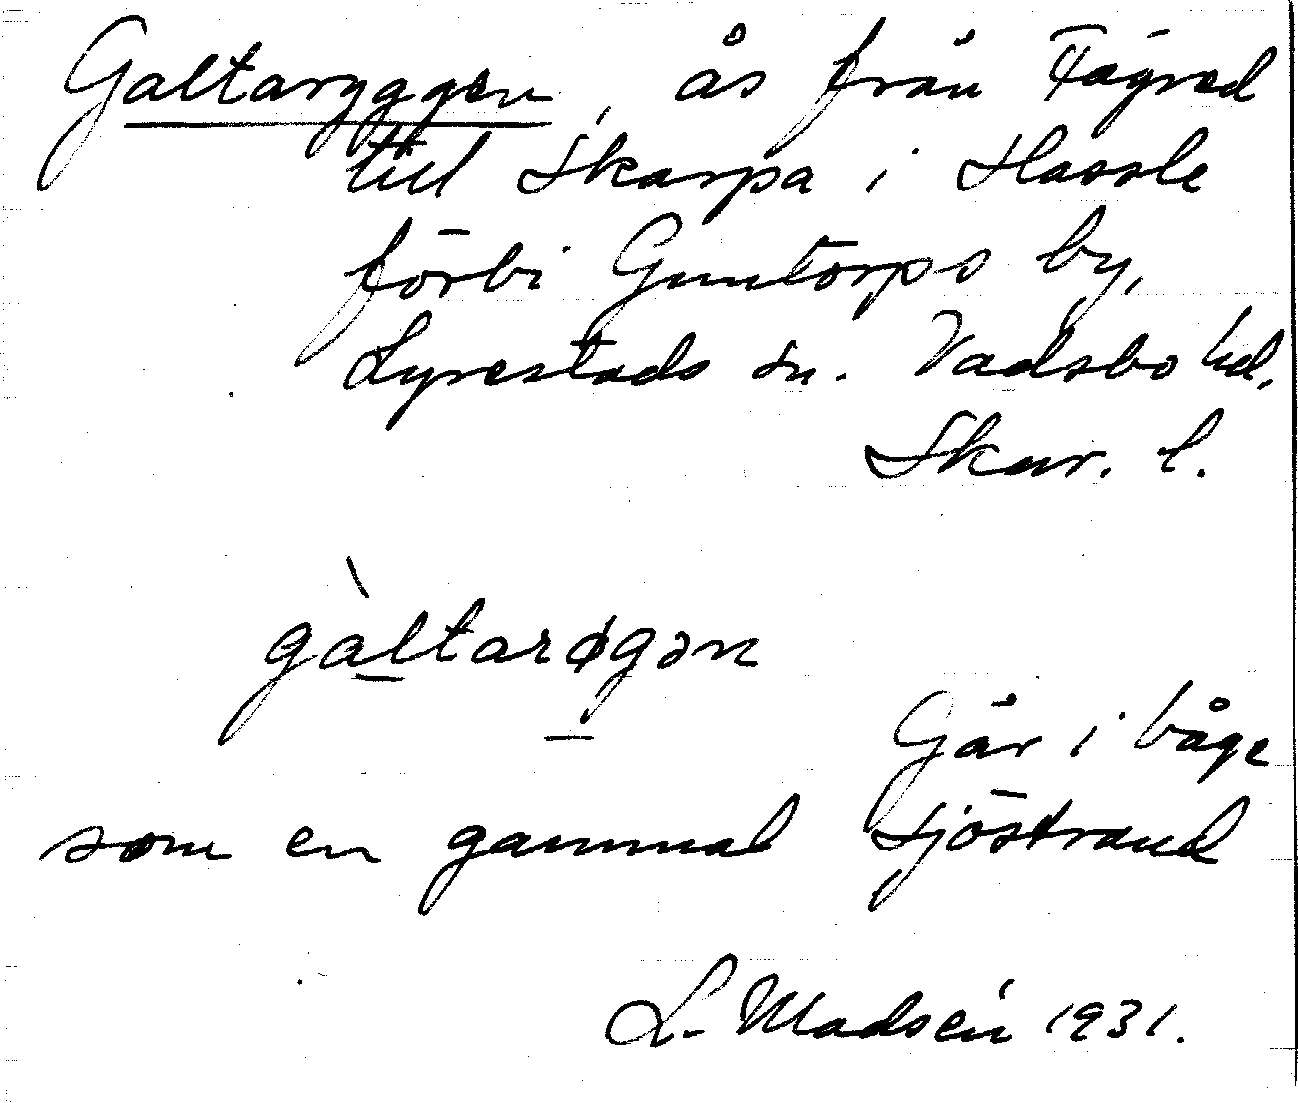 Galtaryggen, ås från Fägred
till Skarpa i Hassle
förbi Guntorps by,
Lyrestads sn. Vadsbo hd,
Skar. l.
gàltarøgən
Går i båge
som en gammal Sjöstrand
L. Madsén 1931.